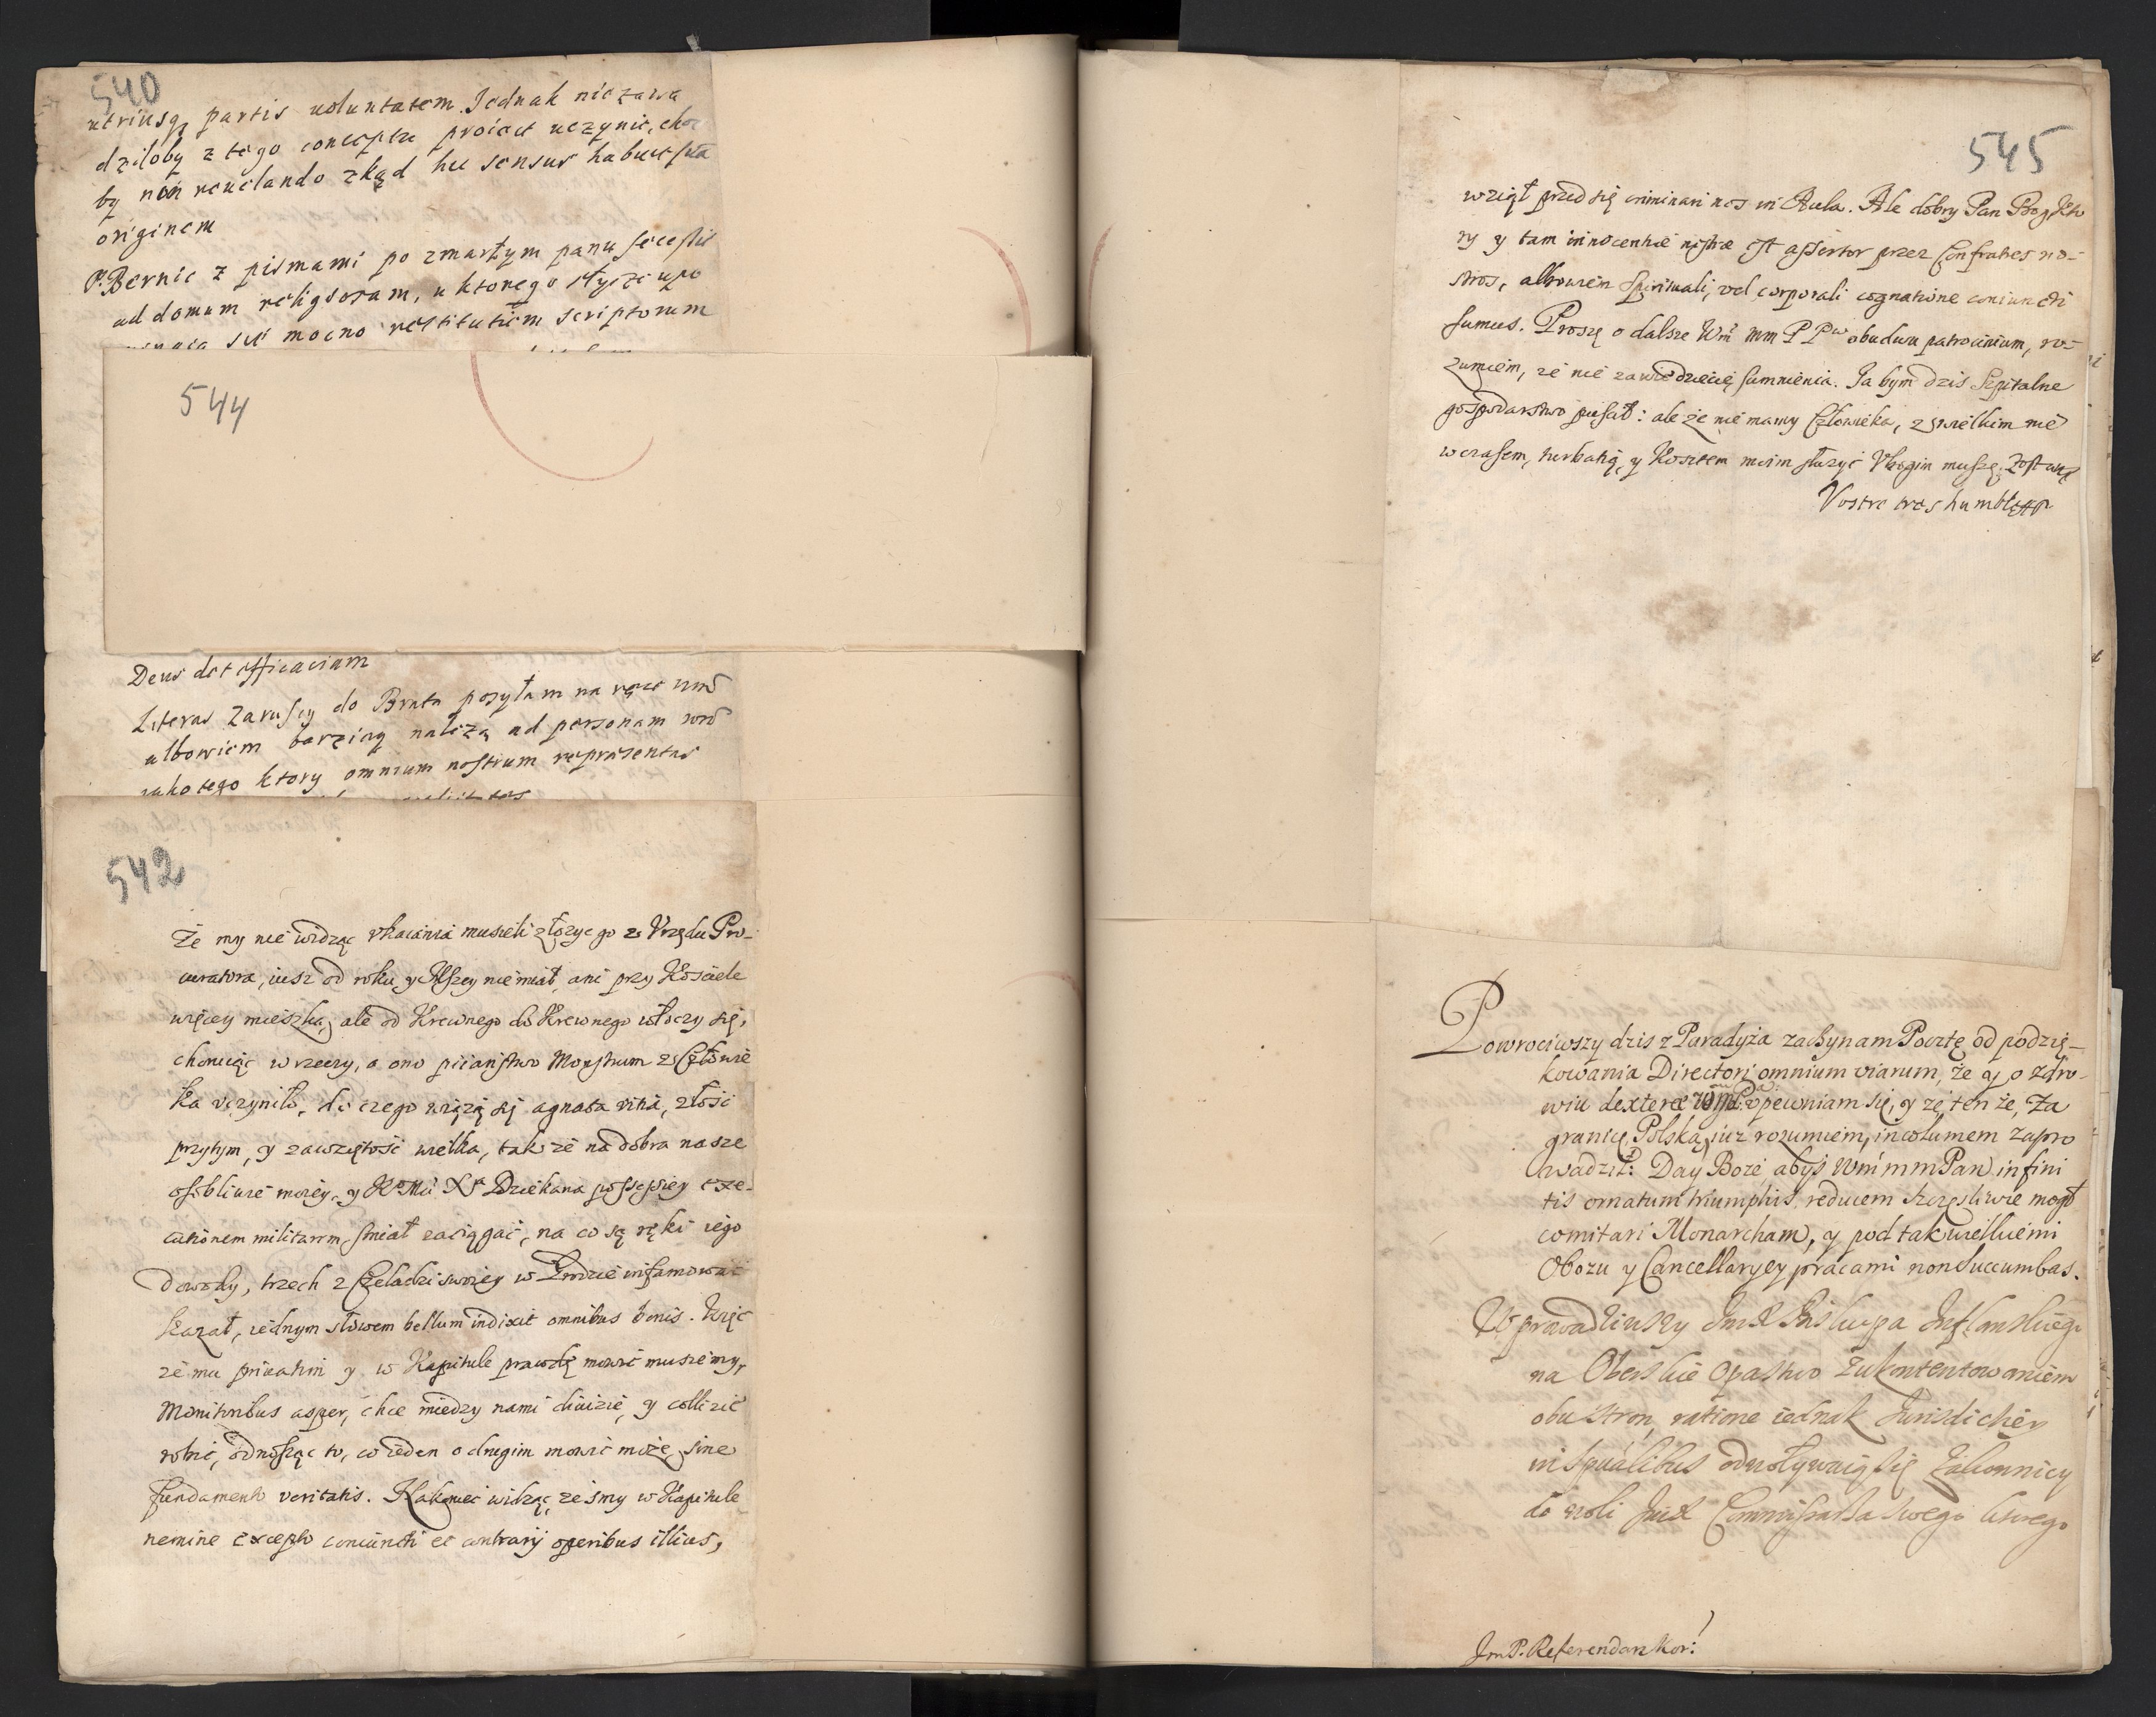 540
utriusq partis uoluntatem. Jednak nie zawa
dziloby z tego conceptu proiect uczynic, cho
by non reuelando zkąd hic sensus habuit sua
originem
P. Bernic z pismami po zmarłym panu
ad domum religiosam, u ktorego słysze upo
sie mocno restitutiem scriptorum
544
Deus det efficaciam
Literas Zarusky do Brata posyłam na ręce wm
albowiem barziey należą ad personam wm
iako tego ktory omnium nostrum repraesentas
542
Że my nie widząc vkarania musieli złozyc go z Vrzędu Pro-
curatora, iusz od roku y Mszey nie miał, ani przy Kosciele
więcey mieszka, ale od Krewnego do Krewnego włoczy się,
choruiąc w rzeczy, a ono piianstwo Monstrum z Człowie
ka vczyniło, do czego wiążą się agnata vitia, złość
przytym, y zawziętość wielka, tak że na dobra nasze
osobliwie moiey, y Dziekana possessiey exe-
cutionem militarem smiał zaciągać, na co są ręki iego
dowody, trzech z Czeladzi swoiey w Grodzie infamować
kazał, iednym słowem bellum indixit omnibus bonis. Więc
że mu priuatim y w Kapitule prawdę mowić musiemy,
Monitoribus asper, chce miedzy nami diuizie, y collizie
robić, odnosząc to, co ieden o drugim mowić może, sine
fundamento veritatis. Nakoniec widząc żesmy w Kapitule
nemine excepto coniuncti et contrarij operibus illius,
545
wziął przed się criminari nos in Aula. Ale dobry Pan Bog kto
ry y tam innocentiae nostrae est assertor przez Confratres no-
stros, albowiem spirituali, vel corporali cognatione coniuncti
sumus. Proszę o dalsze Wm mm P Pw obudwu patrocinium, ro-
zumiem, że nie zawiedziecie sumnienia. Ja bym dzis Szpitalne
gospodarstwo pisał: ale że nie mamy Człowieka, z wielkim nie
wczasem, turbatią, y Kosztem moim służyć Vbogim muszę. Zostawę
Vostre tres humble
Powrociwszy dzis z Paradyża zaczynam Pocztę od podzię-
kowania Directori omnium viarum, że y o zdro-
wiu dexterae upewniam się, y że ten że, za
granicę Polską, iuż rozumiem, incolumem zapro
wadził: Day Boże, abyś Wm mm Pan infini
tis ornatum triumphis, reducem szczęsliwie mogł
comitari Monarcham, y pod tak wielkiemi
Obozu y Cancellaryey pracami non succumbas.
Wprowadziwszy Jmx Biskupa Inflanskiego
na Oberskie Opastwo z ukontentowaniem
obu stron, ratione iednak Jurisdictiey
in spiritualibus odwoływaią się Zakonnicy
do woli Jmx Commissarza swego ktorego
JmP. Referendarz Kor: